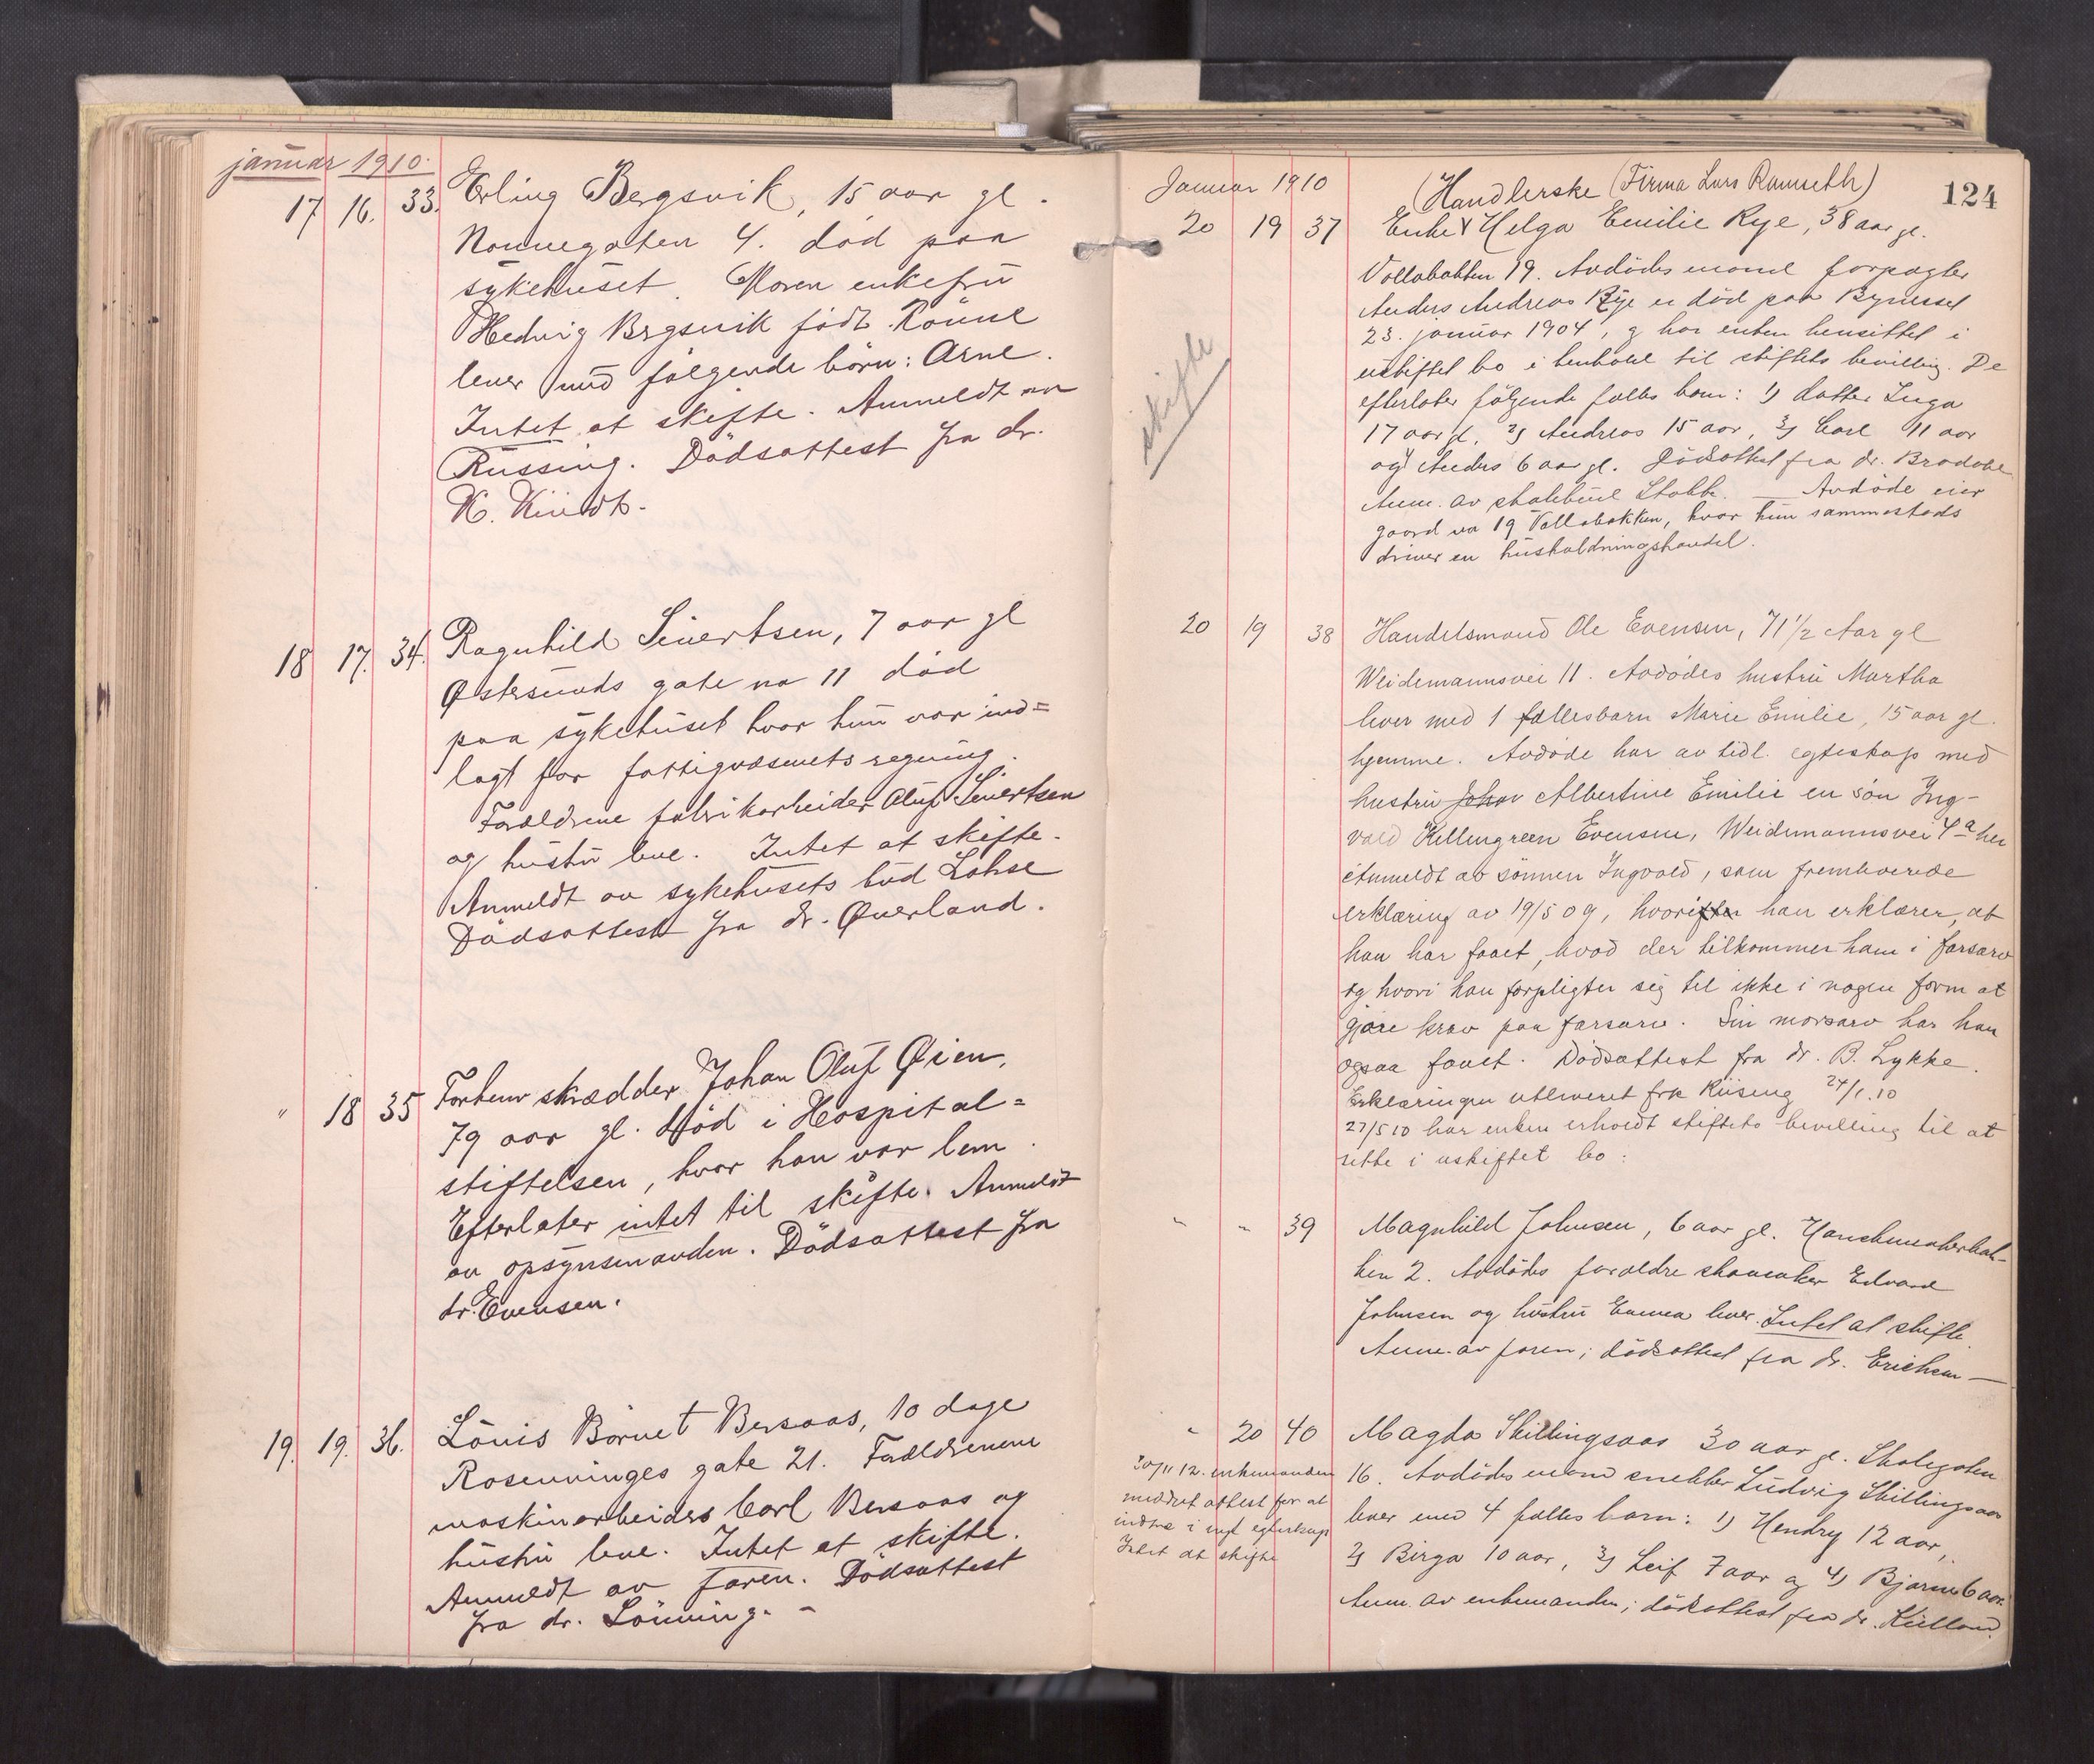 januar 1910.
17 16. 33. Erling Bergsvik, 15 aar gl.
Nonnegaten 4. död paa
sykehuset. Moren enkefru
Hedvig Brgsvik födt Rönne
lever med følgende börn: Arne.
Intet at skifte. Anmeldt av
Russing. Dödsattest fra dr.
K. Kindt.
18 17. 34. Ragnhild Sivertsen, 7 aar gl
Østersunds gate no 11 död
paa sykehuset hvor hun var ind=
lagt for fattigvæsenets regning.
Forældrene fabrikarbeider Oluf Sivertsen
og hustru leve. Intet at skifte.
Anmeldt av sykehusets bud Lohse
Dödsattest fra dr. Øverland.
" 18 35 Forhenv skrædder Johan Oluf Øien,
79 aar gl. död i Hospital=
stiftelsen, hvor han var lem.
Efterlater intet til skifte. Anmeldt
av opsynsmanden. Dödsattest fra
dr. Evensen.
19. 19. 36. Lõuis Börnet Bersaas, 10 dage
Rosenvinges gate 21. Forældrenene
maskinarbeider Carl Bersaas og
hustru leve. Intet at skifte.
Anmeldt av faren. Dödsattest
fra dr. Lönning. -
124
Januar 1910 (Handlerske (Firma Lars Ramseth)
20 19 37 Enke Helga Emilie Rye, 38 aar gl.
Vollabakken 19. Avdödes mand forpagter
Anders Andreas Rye er död paa Bynesset
23. januar 1904, og har enken hensittet i
uskiftet bo i henhold til stiftets bevilling. De
efterlater følgende fælles barn: 1) datter Inga
17 aar gl. 2) Andreas 15 aar, 3) Carl 11 aar
og 4) Anders 6 aar gl. Dödsattest fra dr.
Anm. av Stabb. Avdöde eier
gaard no 19 Vollabakken, hvor hun sammesteds
driver en husholdningshandel.
skifte
20 19 38 Handelsmand Ole Evensen, 71 1/2 Aar gl
Weidemannsvei 11. Avdödes hustru Martha
lever med 1 fællesbarn Marie Emilie, 15 aar gl.
hjemme. Avdöde har av tidl. egteskap med
hustru Johan Albertine Emilie en sön Ing-
vald Kellingreen Evensen, Weidemannsvei 4a her
Anmeldt av sönnen Ingvald, som fremleverede
erklæring av 19/5 09, hvorifter han erklærer, at
han har faaet, hvad der tilkommer ham i farsarv
og hvori han forpligter sig til ikke i nogen form at
gjøre krav paa farsarv. Sin morsarv har han
ogsaa faaet. Dödsattest fra dr. B. Lykke.
Erklæringen utleveret frk Riising 24/1.10
27/5 10 har enken erholdt stiftets bevilling til at
sitte i uskiftet bo.
" " 39 Magnhild Johnsen, 6 aar gl.
ken 2. Avdödes forældre skomaker Edvard
Johnsen og hustru Emma lever. Intet at skifte
Anm. av faren; dödsattest fra dr. Erichsen —
" 20 40 Magda Skillingsaas 30 aar gl. Skolegaten
16. Avdödes mand snekker Ludvig Skillingsaas
lever med 4 fælles barn: 1) Hendry 12 aar,
2) Birga 10 aar, 3) Leif 7 aar og 4) Bjarne 6 aar.
Anm. av enkemanden; dödsattest fra dr. Kielland.
20/11 12. enkemanden
meddelt attest for at
indtræ i nyt egteskap
Intet at skifte